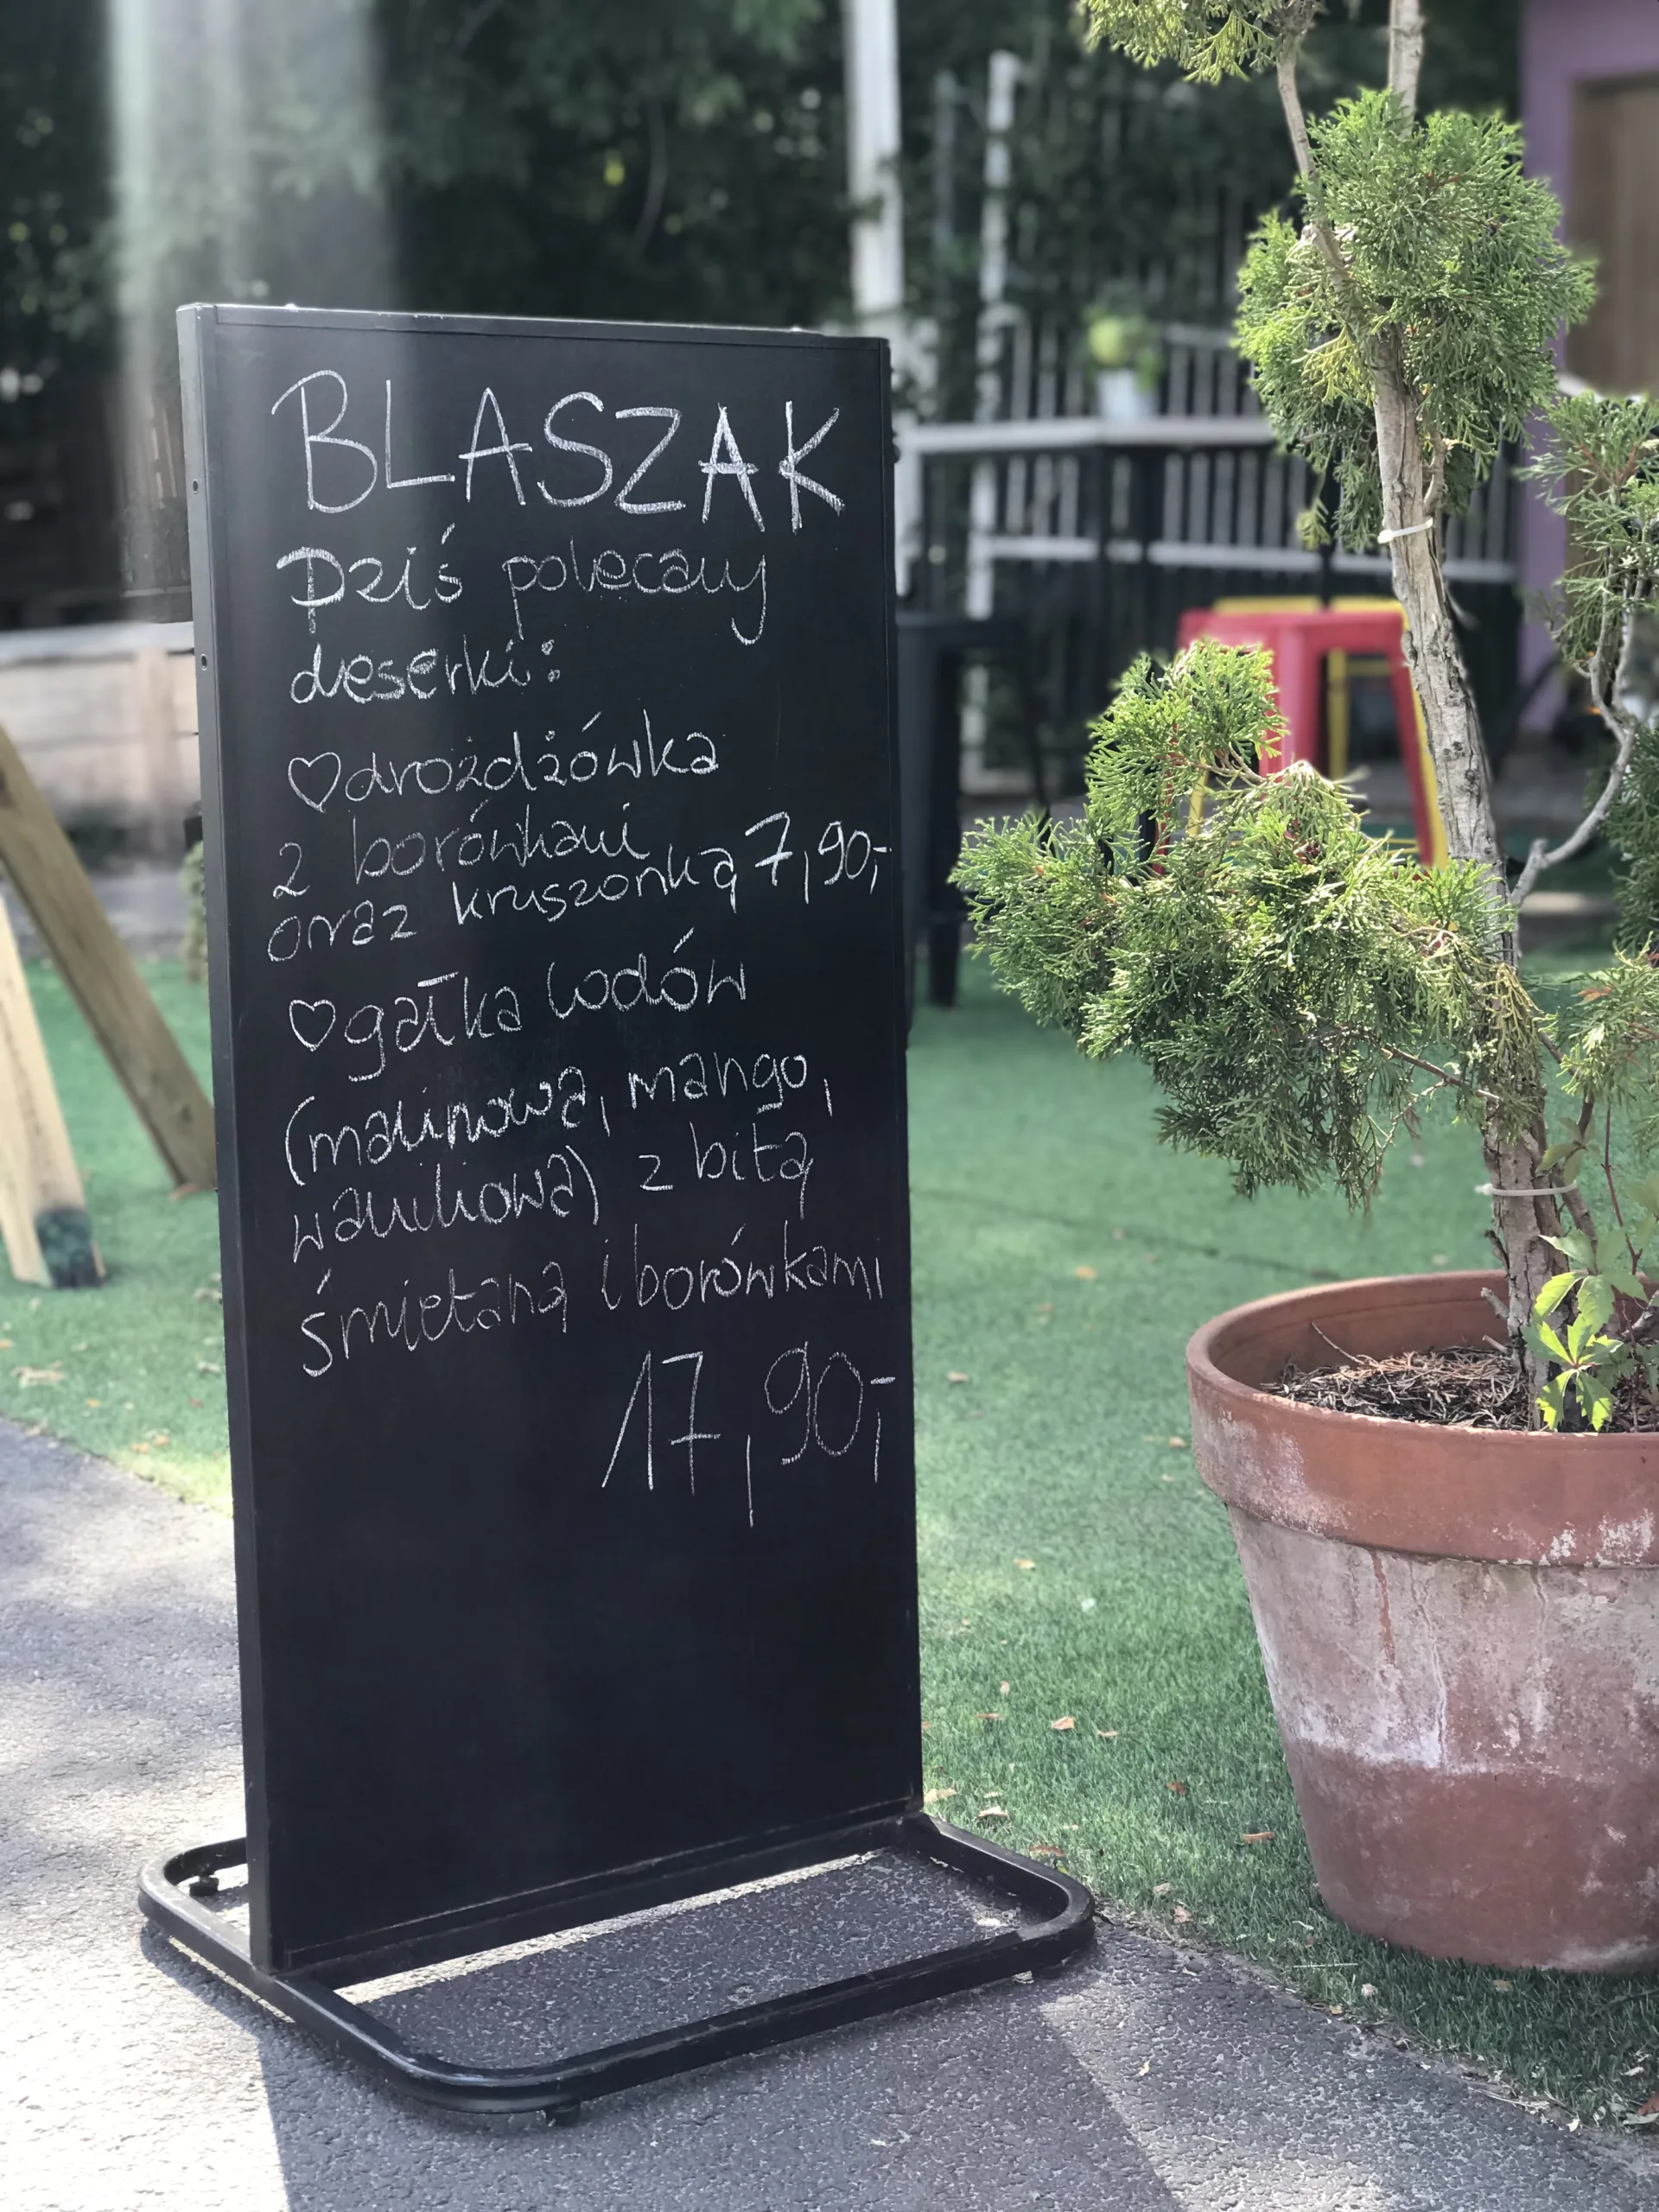 BLASZAK
Dziś polecamy
deserki:
♡ drożdżówka
z borówkami
oraz kruszonką 7,90,-
♡ gałka lodów
(malinowa, mango,
waniliowa) z bitą
śmietaną i borówkami
17,90,-